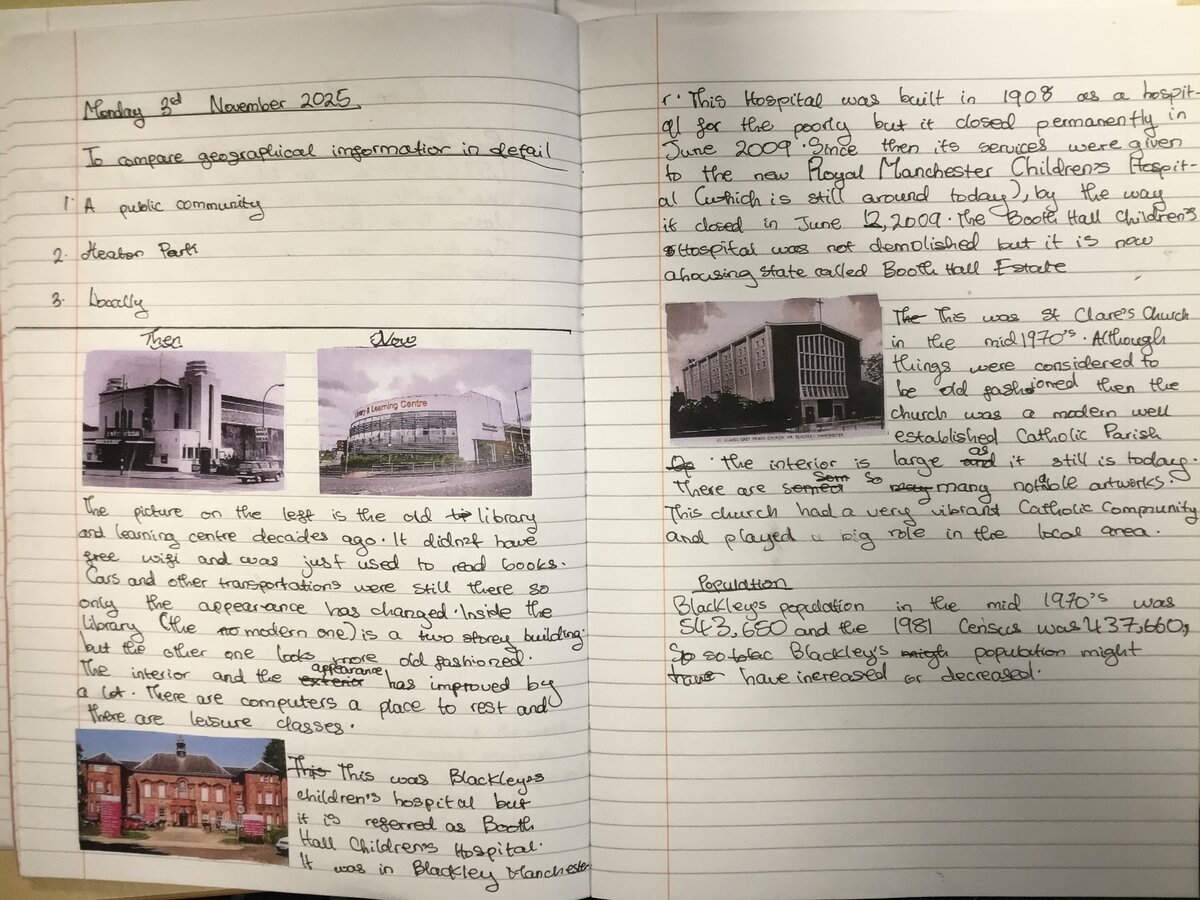 Monday 3rd November 2025
To compare geographical information in detail
1. A public community
2. Heaton Park
3. Locally
Then Now
Library & Learning Centre
The picture on the left is the old library
and learning centre decades ago. It didn't have
free wifi and was just used to read books.
Cars and other transportations were still there so
only the appearance has changed. Inside the
library (the modern one) is a two storey building
but the other one looks more old fashioned.
The interior and the exterior appearance has improved by
a lot. There are computers a place to rest and
there are leisure classes.
This This was Blackleyes
children's hospital but
it is referred as Booth
Hall Children's Hospital.
It was in Blackley Manchester
r. This Hospital was built in 1908 as a hospit-
al for the poorly but it closed permanently in
June 2009. Since then its services were given
to the new Royal Manchester Children's Hospit-
al (which is still around today), by the way
it closed in June 12, 2009. The Booth Hall Children's
Hospital was not demolished but it is now
a housing state called Booth Hall Estate
ST. CLARES GREY FRIARS CHURCH HR. BLACKLEY, MANCHESTER
The This was St Clare's Church
in the mid 1970's. Although
things were considered to
be old fashioned then the
church was a modern well
established Catholic Parish
. the interior is large and as it still is today.
There are so many notable artworks.
This church had a very vibrant Catholic Community
and played a big role in the local area.
Population
Blackley's population in the mid 1970's was
543,650 and the 1981 Census was 437,660,
So so Blackley's migh population might
have have increased or decreased.